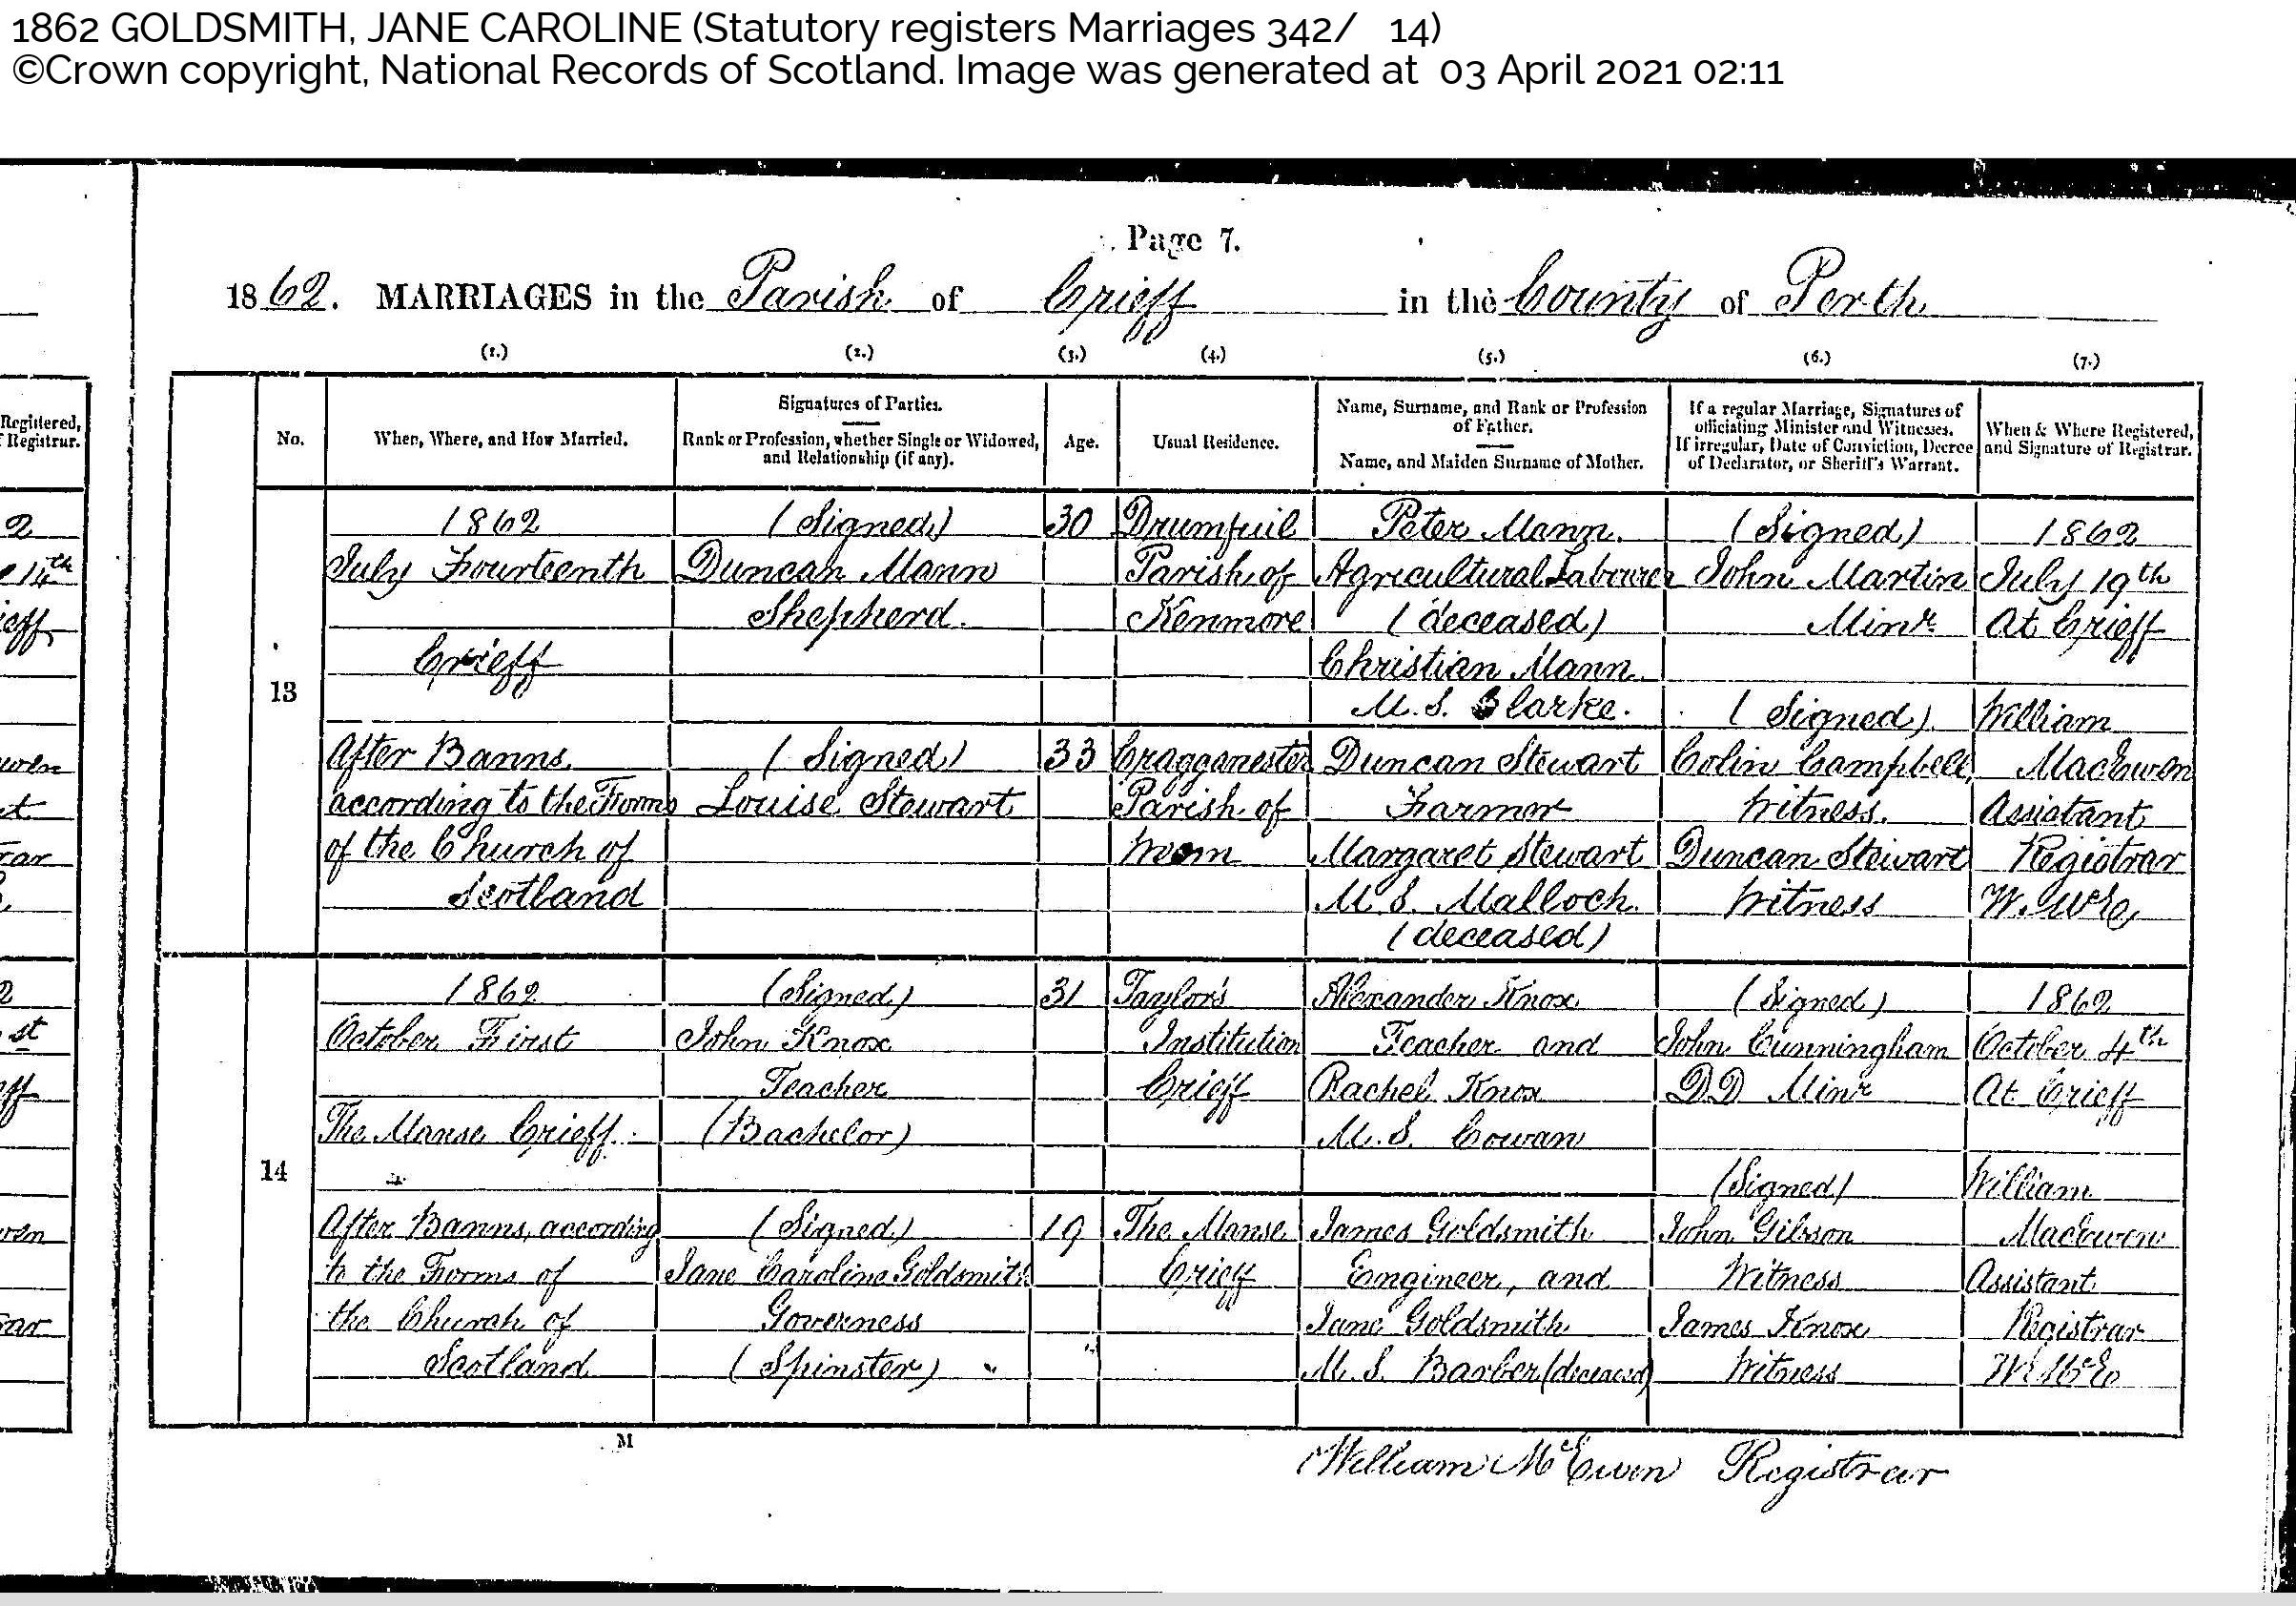 1862 GOLDSMITH, JANE CAROLINE (Statutory registers Marriages 342/ 14)
©Crown copyright, National Records of Scotland. Image was generated at 03 April 2021 02:11
Page 7.
1862. MARRIAGES in the Parish of Crieff in the County of Perth
(1.) (2.) (3.) (4.) (5.) (6.) (7.)
No.
When, Where, and How Married.
Signatures of Parties.
Rank or Profession, whether Single or Widowed,
and Relationship (if any).
Age.
Usual Residence.
Name, Surname, and Rank or Profession
of Father.
Name, and Maiden Surname of Mother.
If a regular Marriage, Signatures of
officiating Minister and Witnesses.
If irregular, Date of Conviction, Decree
of Declarator, or Sheriff's Warrant.
When & Where Registered,
and Signature of Registrar.
Registered,
f Registrar.
13
1862
July Fourteenth
Crieff
After Banns
according to the Forms
of the Church of
Scotland
(Signed)
Duncan Mann
Shepherd.
(Signed)
Louise Stewart
30
33
Parish of
Kenmore
Cragganester
Parish of
Weem
Peter Mann.
Agricultural Labourer
(deceased)
Christian Mann
M.S. Clarke.
Duncan Stewart
Farmer
Margaret Stewart
M.S. Malloch.
(deceased)
(Signed)
John Martin
Minr.
(Signed)
Colin Campbell,
Witness.
Duncan Stewart
Witness
1862
July 19th
At Crieff
William
MacEwen
Assistant
Registrar
W. McE,
14
1862
October First
The Manse Crieff.
After Banns, according
to the Forms of
the Church of
Scotland
(Signed)
John Knox
Teacher
(Bachelor)
(Signed)
Jane Caroline Goldsmith
Governess
(Spinster)
31
19
Taylor's
Institution
Crieff
The Manse
Crieff
Alexander Knox
Teacher and
Rachel Knox
M.S. Cowan
James Goldsmith
Engineer, and
Jane Goldsmith
M.S. Barber (deceased)
(Signed)
John Cunningham
DD Minr
(Signed)
John Gibson
Witness
James Knox
Witness
1862
October 4th
At Crieff
William
MacEwen
Assistant
Registrar
W McE
M
William McEwen Registrar